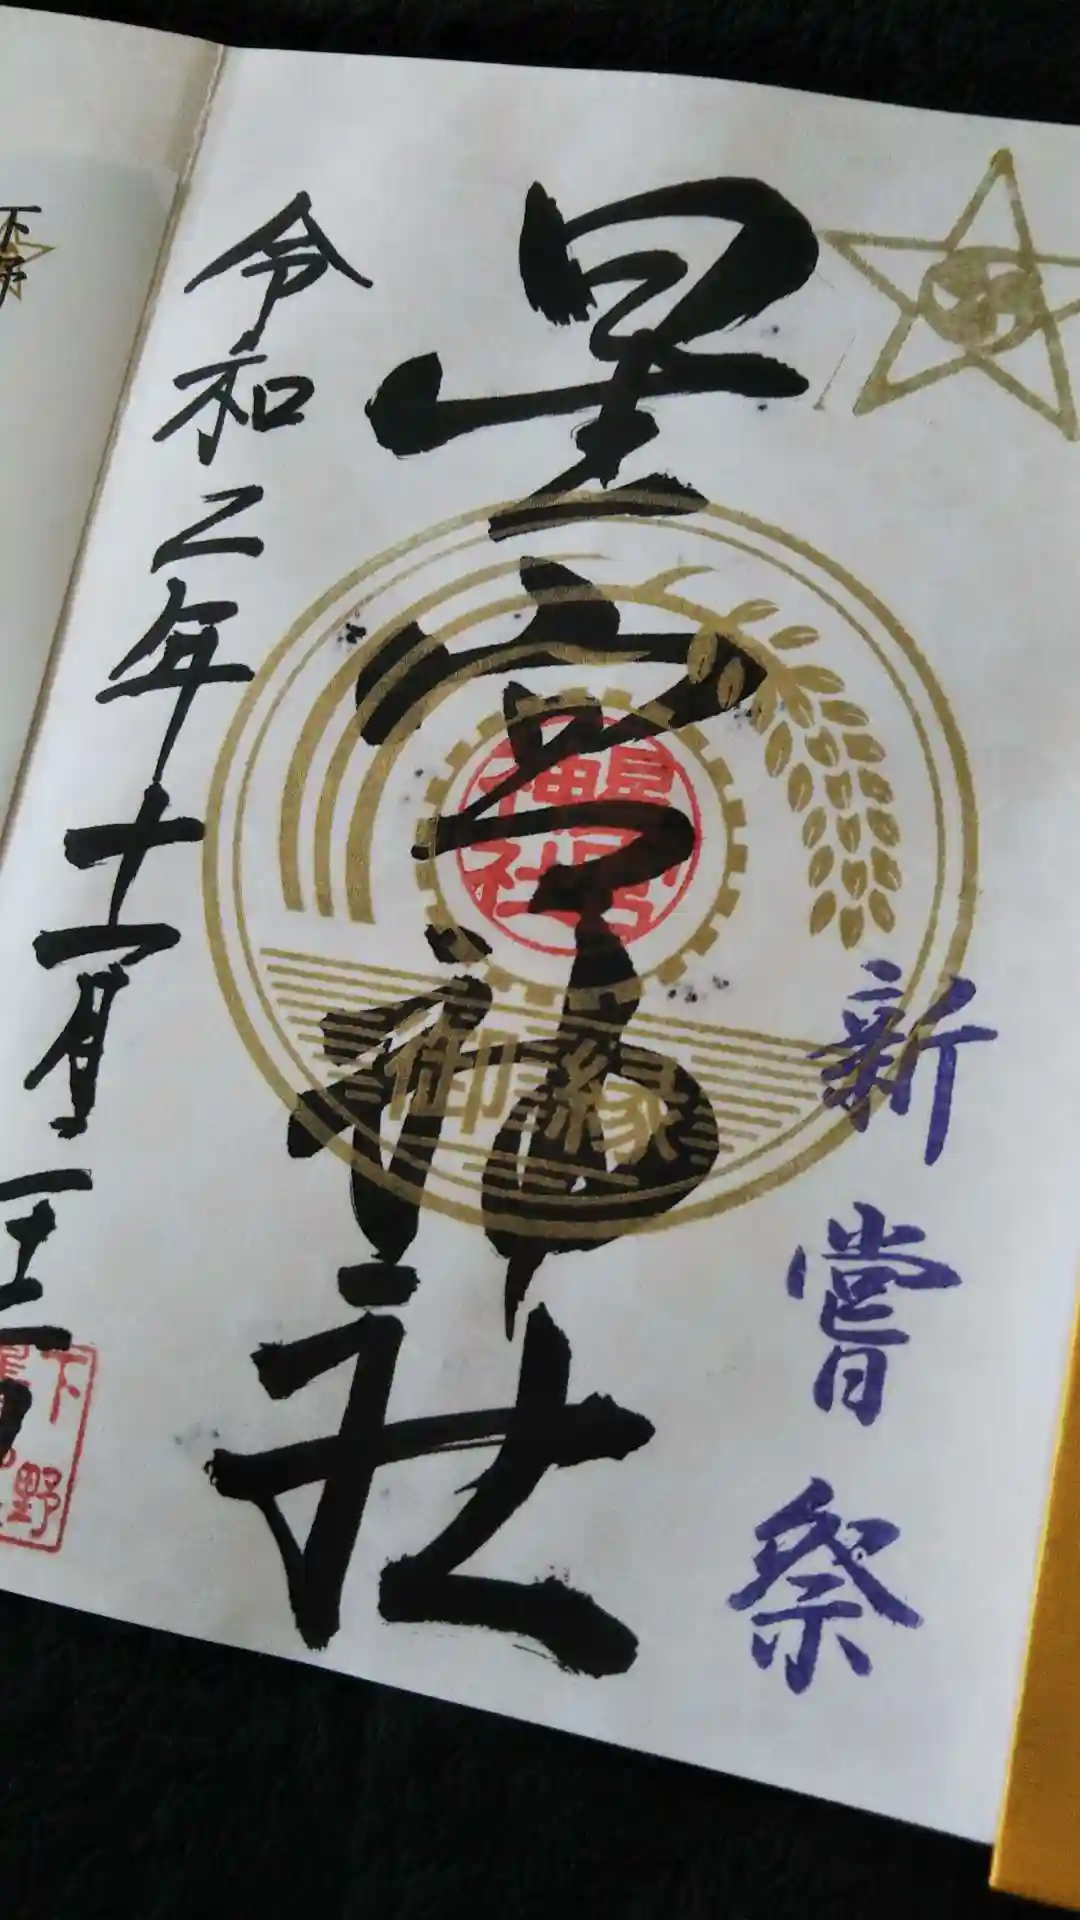 新嘗祭
星宮神社
星宮神社
御縁
令和乙年十一月
下野